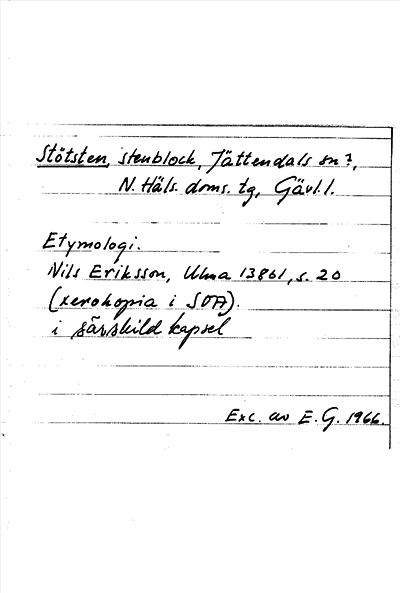 Stötsten, stenblock, Jättendals sn?,
N. Häls. doms. tg, Gävl. l.
Etymologi.
Nils Eriksson, Ulma 13861, s. 20
(xerokopia i SOA).
i särskild kapsel
Exc. av E. G. 1966.